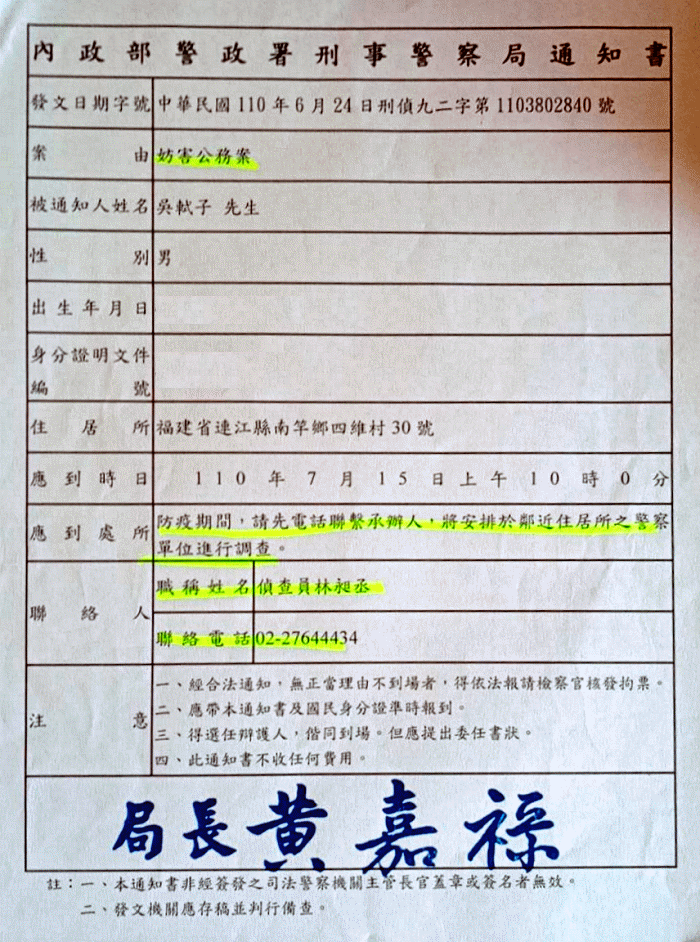 內政部警政署刑事警察局通知書
發文日期字號 中華民國110年6月24日刑偵九二字第1103802840號
案由 妨害公務案
被通知人姓名 吳軾子 先生
性別 男
出生年月日
身分證明文件
編號
住居所 福建省連江縣南竿鄉四維村30號
應到時日 110年7月15日上午10時0分
應到處所 防疫期間，請先電話聯繫承辦人，將安排於鄰近住居所之警察
單位進行調查。
聯絡人 職稱姓名 偵查員林昶丞
聯絡電話 02-27644434
注意 一、經合法通知，無正當理由不到場者，得依法報請檢察官核發拘票。
二、應帶本通知書及國民身分證準時報到。
三、得選任辯護人，偕同到場。但應提出委任書狀。
四、此通知書不收任何費用。
局長 黃嘉祿
註：一、本通知書非經簽發之司法警察機關主管長官蓋章或簽名者無效。
二、發文機關應存稿並判行備查。